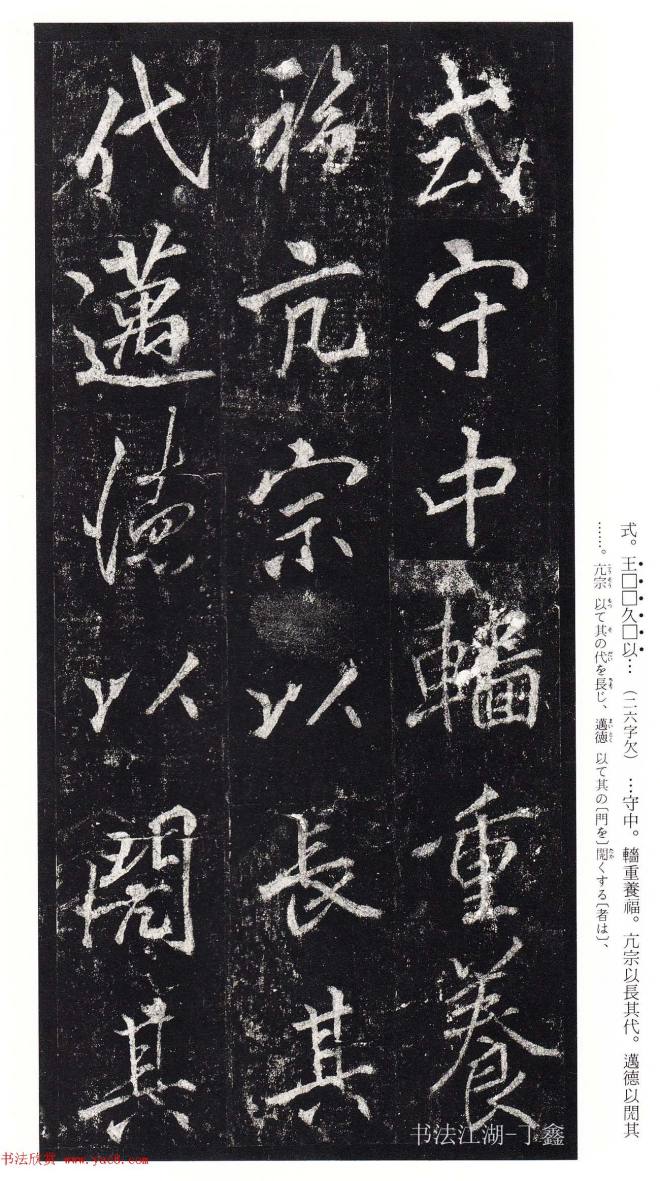 式守中轖重養
福亢宗以長其
代邁德以閌其
式。王□□久□以…（二六字欠）…守中。轖重養福。亢宗以長其代。邁德以閌其
……。亢宗以て其の代を長じ、邁徳以て其の〔門を〕閌くする〔者は〕、
书法江湖-丁鑫
书法欣赏 www.yac8.com